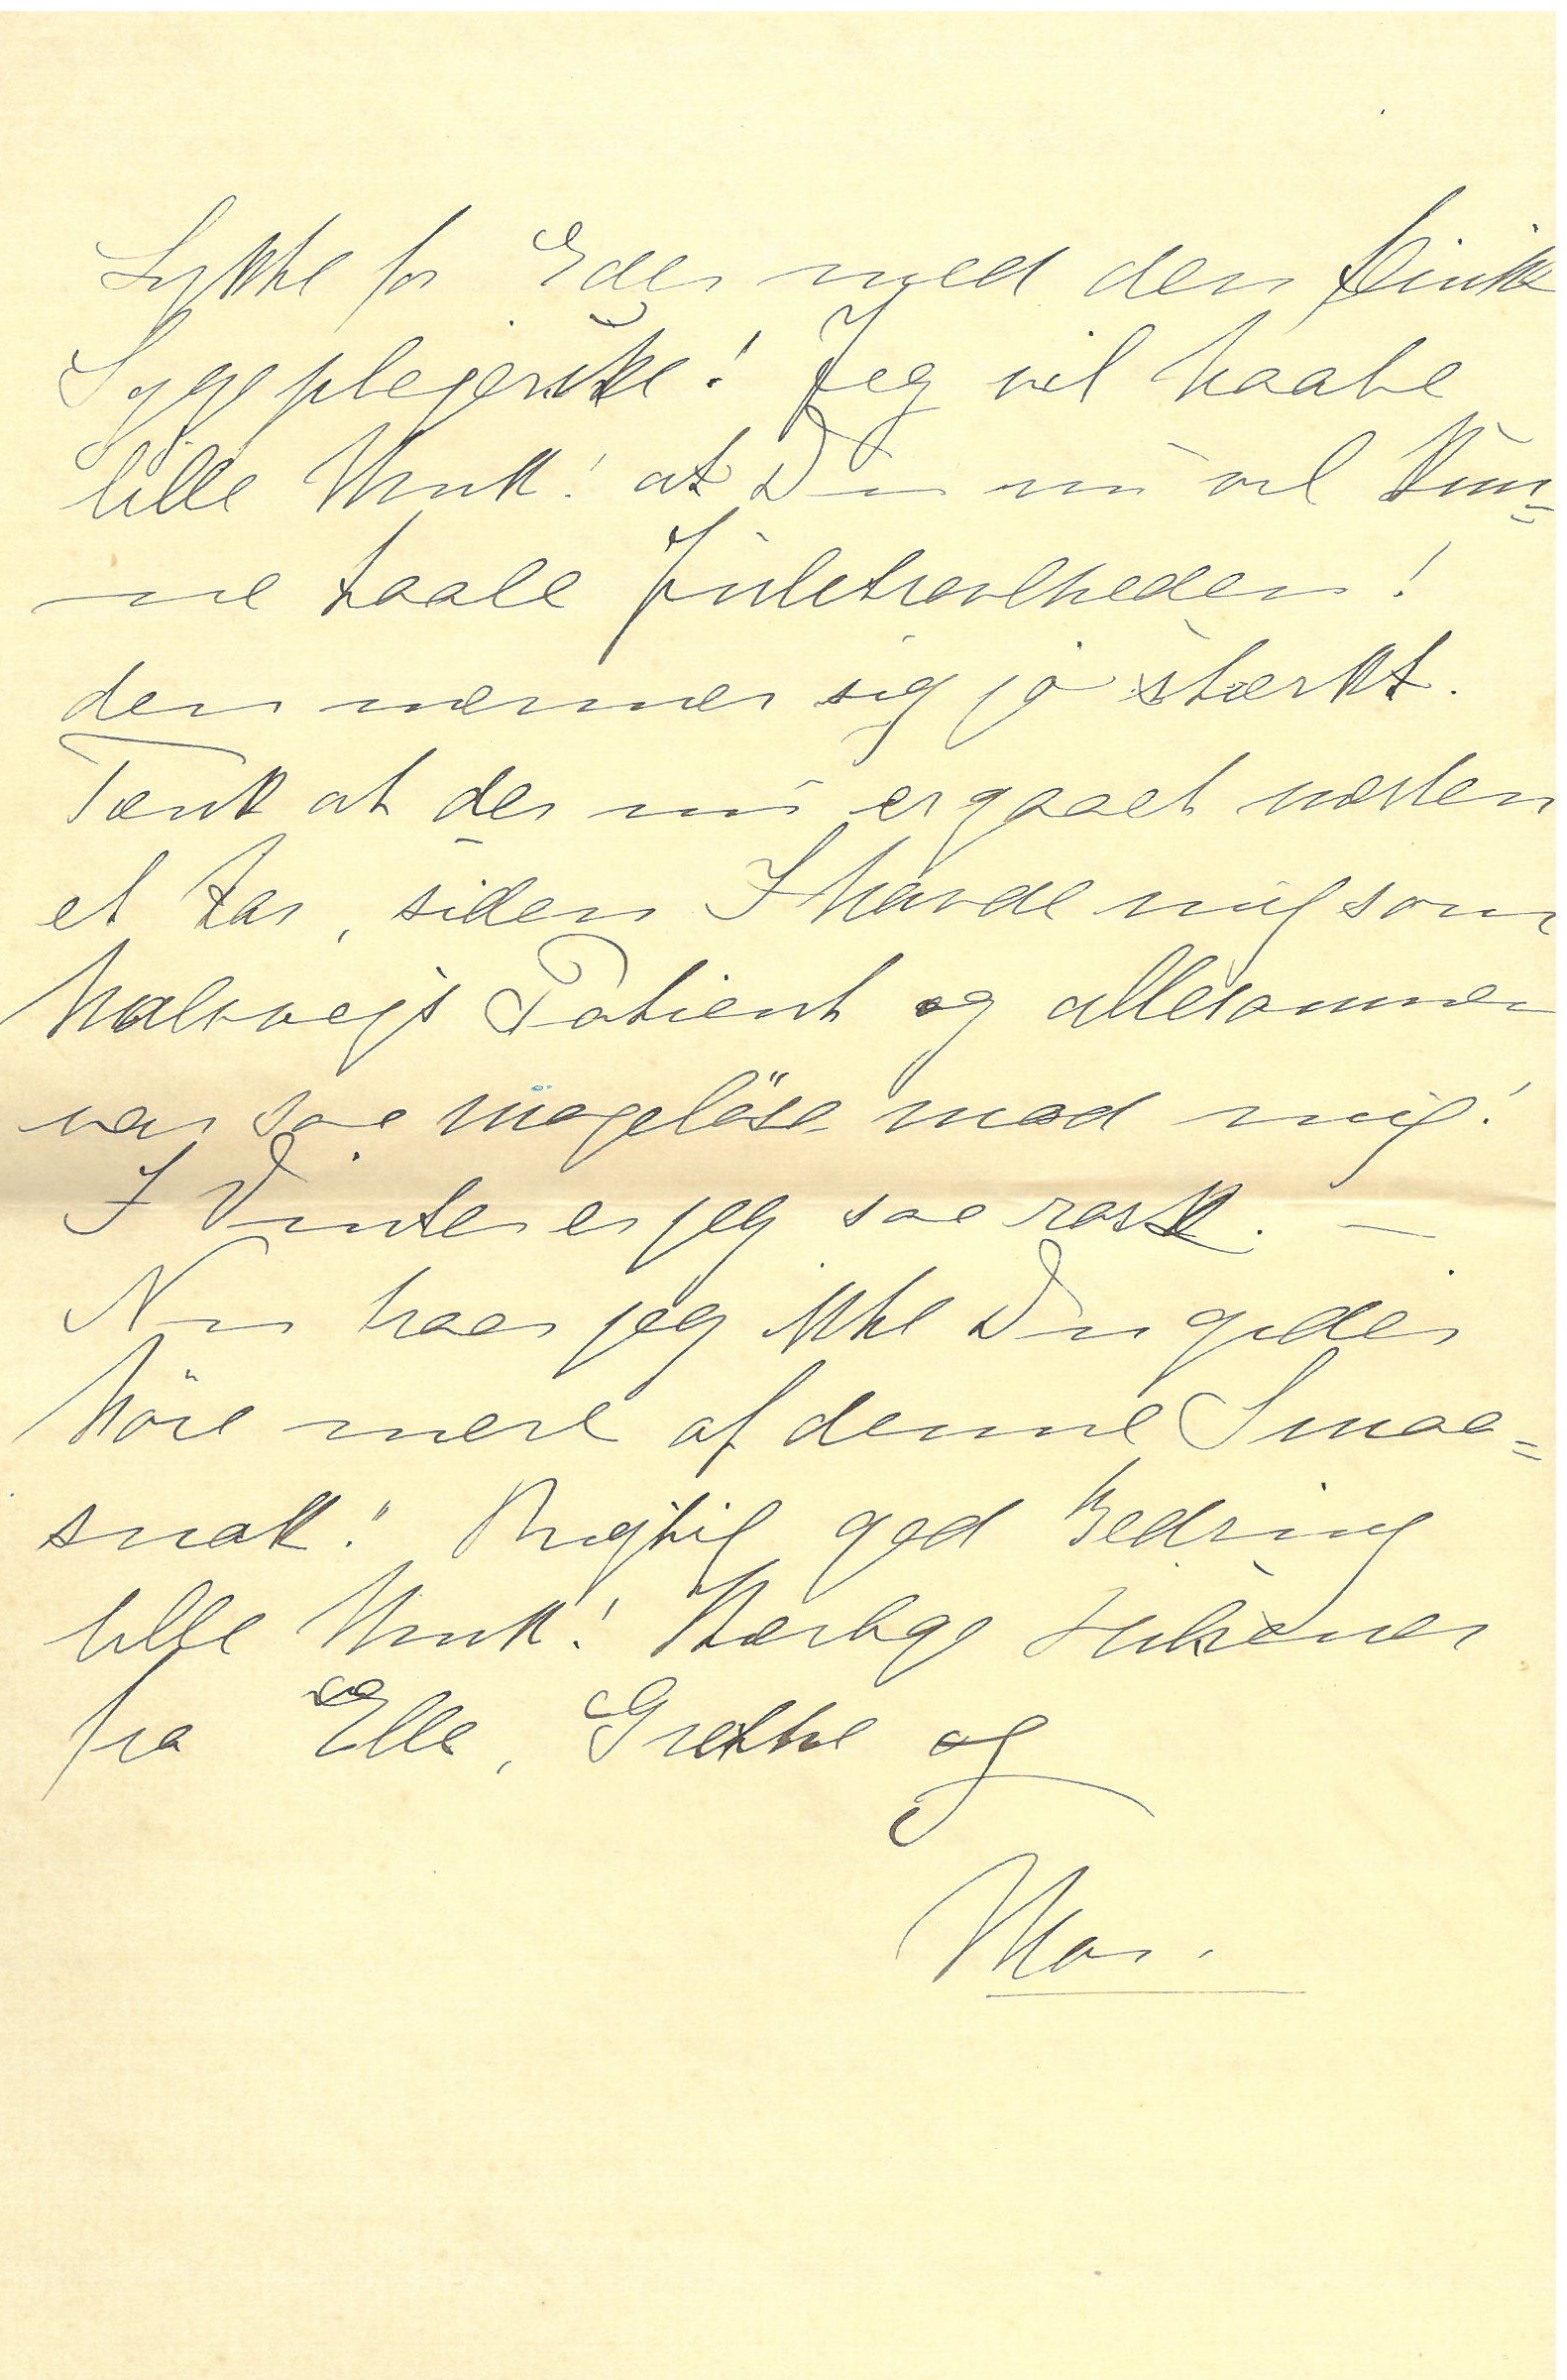 Lykke for Eder med den flinke
Sygeplejerske! Jeg vil haabe
lille Muk! at Du nu vil kun=
ne taale Juletravlheden!
den nærmer sig jo stærkt.
Tænk at der nu er gaaet næsten
et Aar, siden I havde mig som
halvvejs Patient og allesammen
var saa mageløse mod mig!
I Vinter er jeg saa rask. —
Nu troer jeg ikke Du gider
høre mere af denne Smaa=
snak." Rigtig god Bedring
lille Muk! Kærlige Hilsener
fra Elle, Grethe og
Mor.